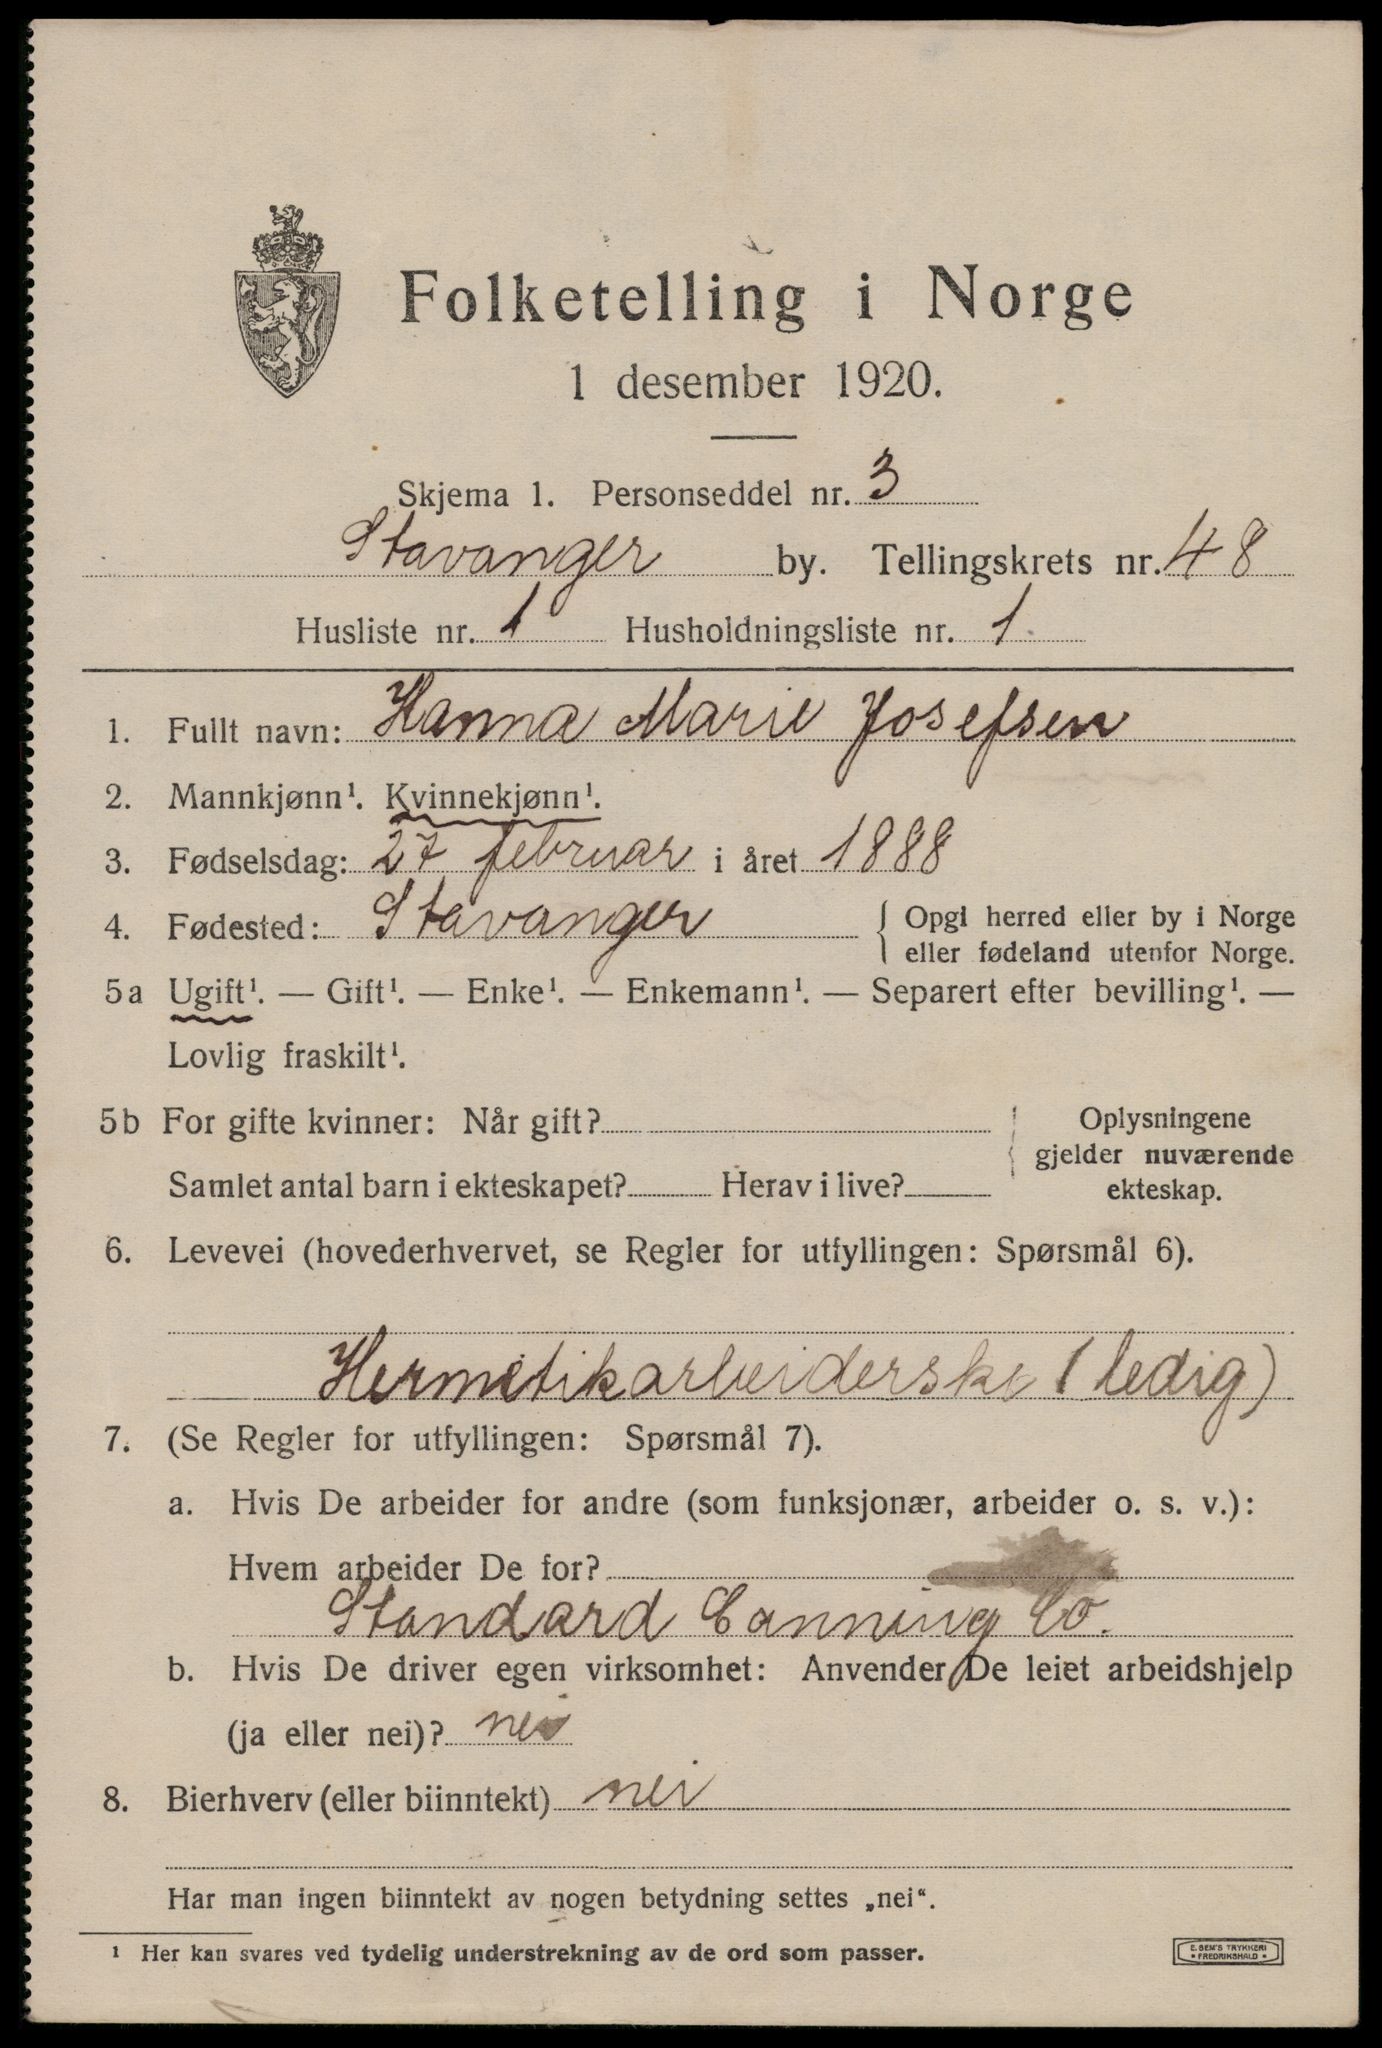 Folketelling i Norge
1 desember 1920.
Skjema 1. Personseddel nr. 3
Stavanger by. Tellingskrets nr. 48
Husliste nr. 1 Husholdningsliste nr. 1.
1. Fullt navn: Hanna Marie Josefsen
2. Mannkjønn¹. Kvinnekjønn¹.
3. Fødselsdag: 27 februar i året 1888
4. Fødested: Stavanger { Opgi herred eller by i Norge
eller fødeland utenfor Norge.
5a Ugift¹. — Gift¹. — Enke¹. — Enkemann¹. — Separert efter bevilling¹. —
Lovlig fraskilt¹.
5b For gifte kvinner: Når gift? { Oplysningene
gjelder nuværende
Samlet antal barn i ekteskapet? Herav i live? ekteskap.
6. Levevei (hovederhvervet, se Regler for utfyllingen: Spørsmål 6).
Hermetikarbeiderske (ledig)
7. (Se Regler for utfyllingen: Spørsmål 7).
a. Hvis De arbeider for andre (som funksjonær, arbeider o. s. v.):
Hvem arbeider De for?
Standard Canning Co.
b. Hvis De driver egen virksomhet: Anvender De leiet arbeidshjelp
(ja eller nei)? nei
8. Bierhverv (eller biinntekt) nei
Har man ingen biinntekt av nogen betydning settes „nei“.
¹ Her kan svares ved tydelig understrekning av de ord som passer.
E. SEM'S TRYKKERI
• FREDRIKSHALD •